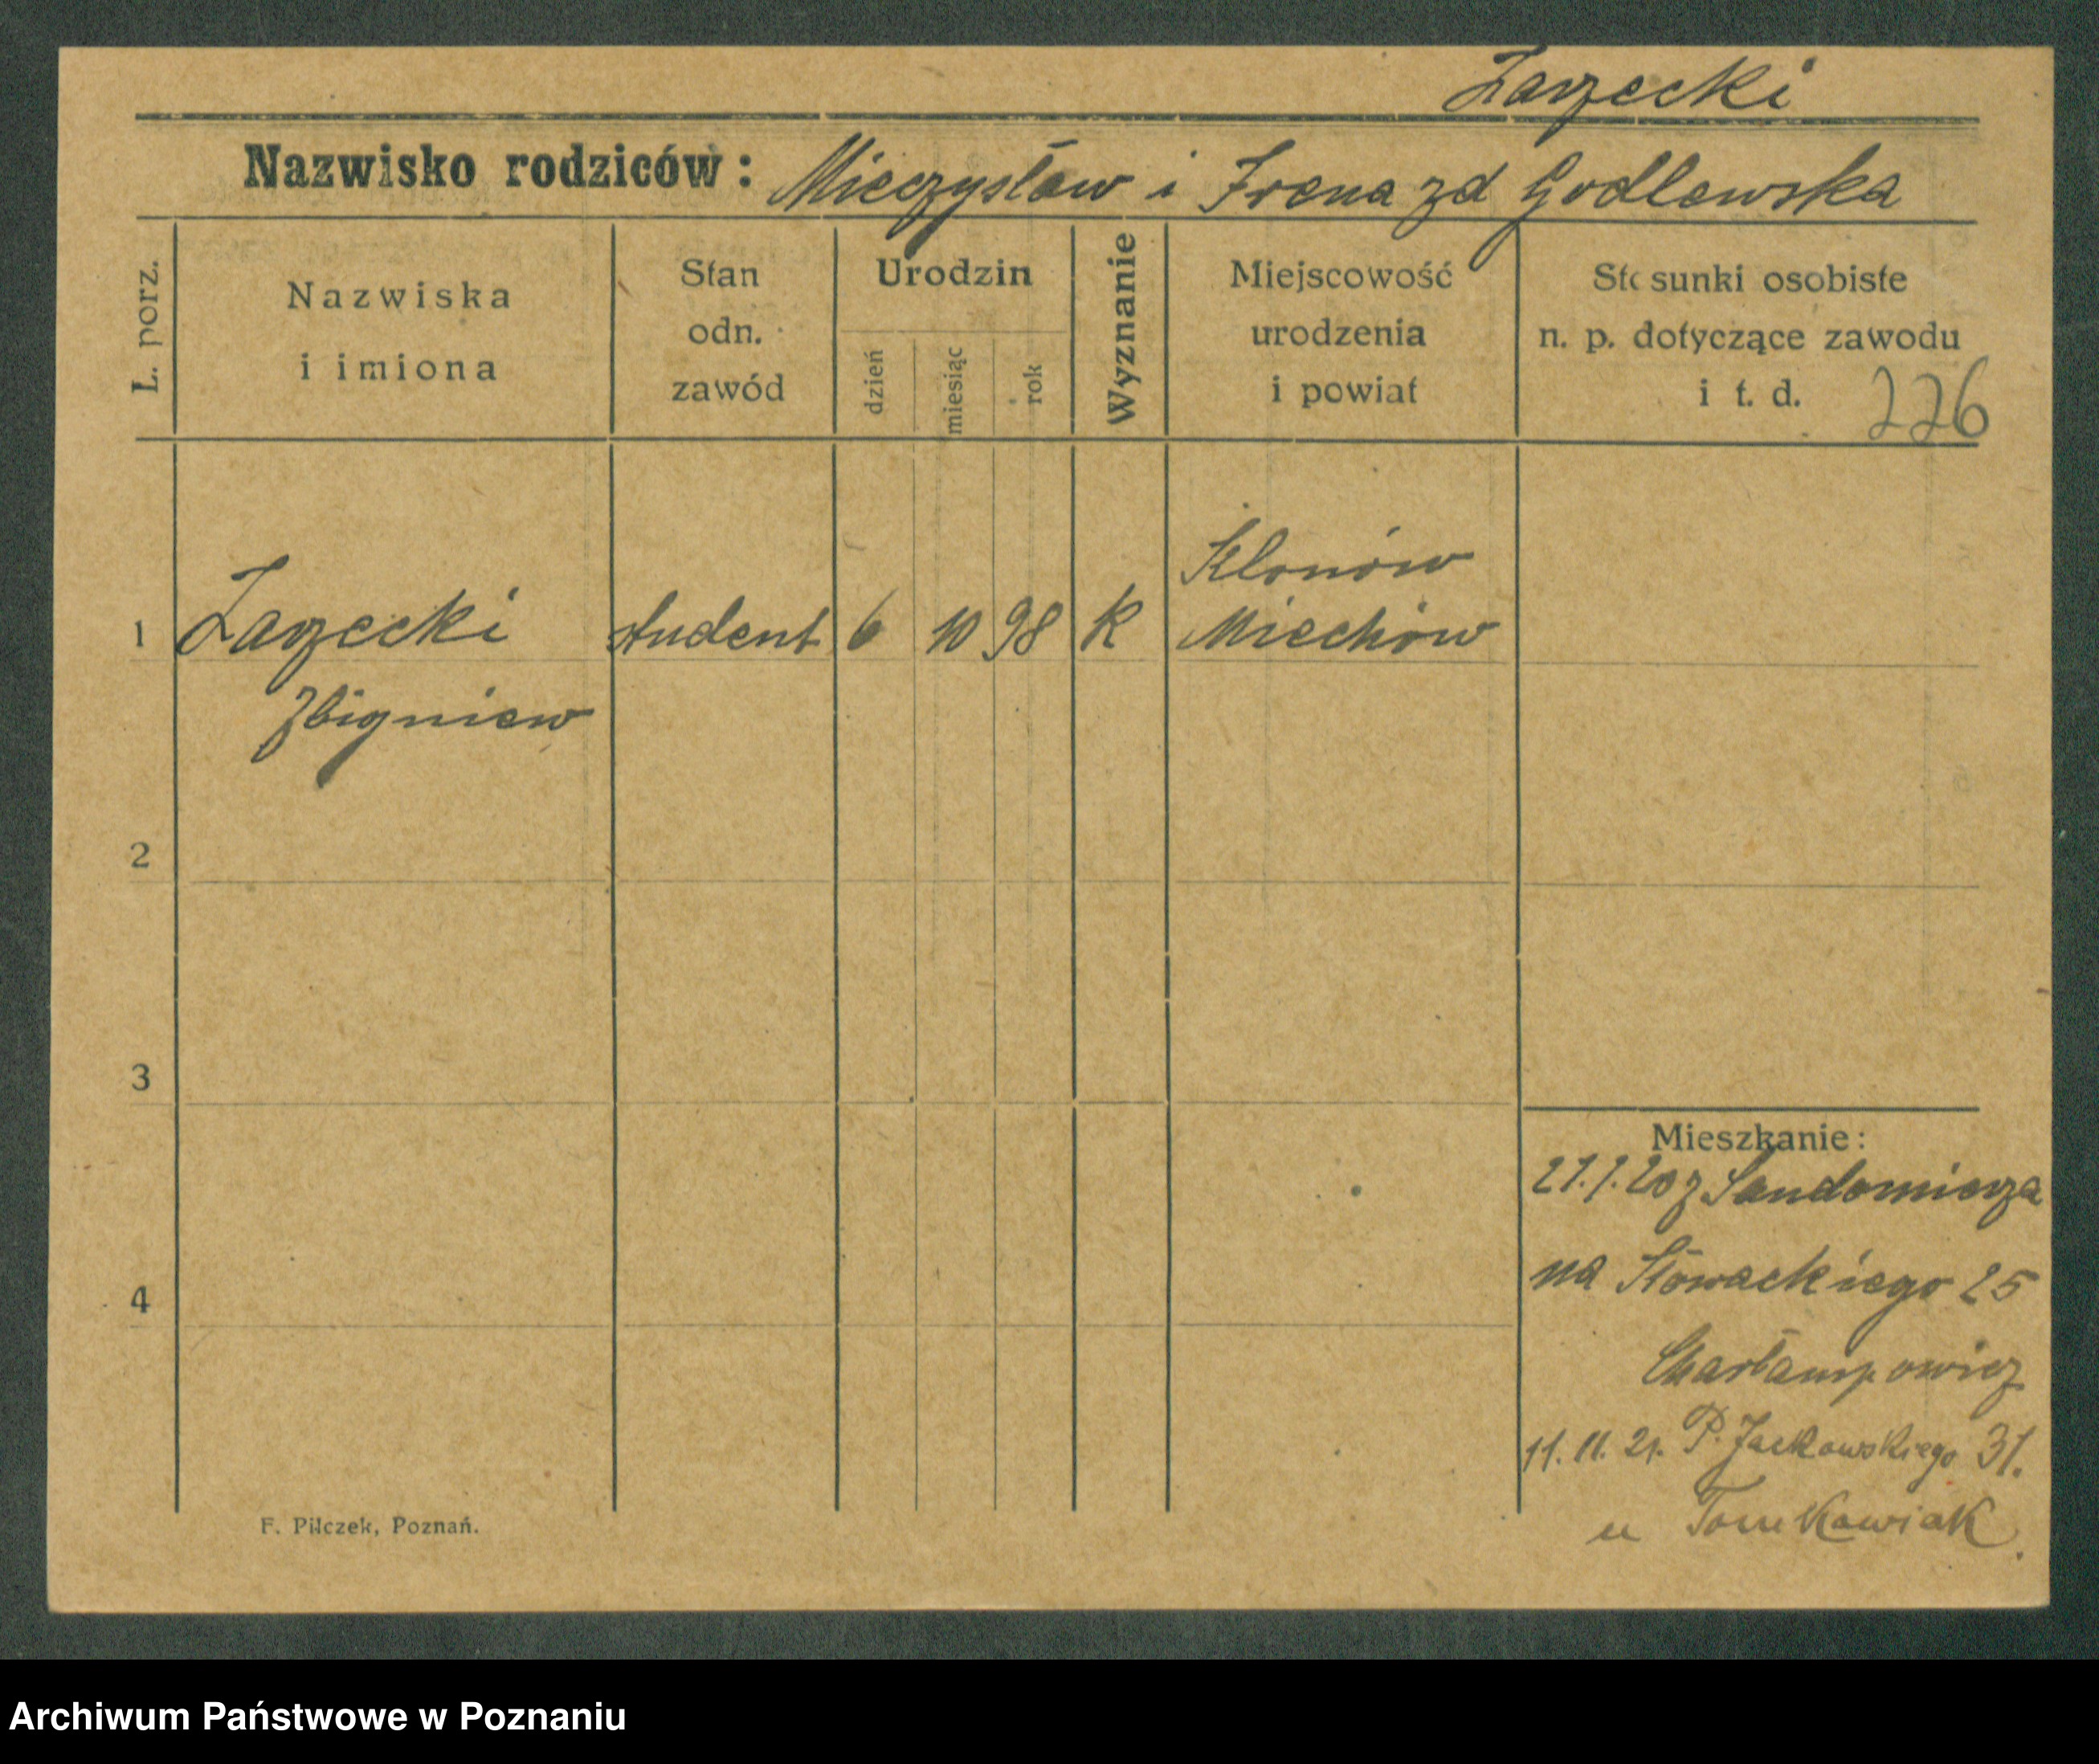 Zarzecki
Nazwisko rodziców: Mieczysław i Irena zd Godlewska
L. porz.
Nazwiska
i imiona
Stan
odn.
zawód
Urodzin
dzień
miesiąc
rok
Wyznanie
Miejscowość
urodzenia
i powiat
Stosunki osobiste
n. p. dotyczące zawodu
i t. d.
226
Klonów
1 Zarzecki student 6 10 98 K Miechów
Zbigniew
2
3
4
Mieszkanie:
21.1.20 z Sandomierza
na Słowackiego 25
Charłampowicz
11. 11. 21. P. Jackowskiego 31.
u Tomkowiak.
F. Pilczek, Poznań.
Archiwum Państwowe w Poznaniu